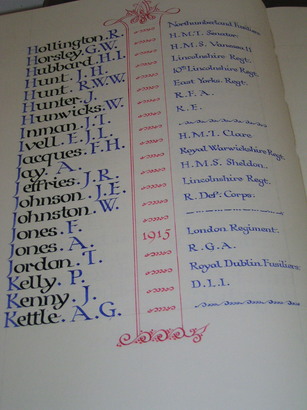 Hollington. R. Northumberland Fusiliers
Horsley. G.W. H.M.T.
Hubbard. H.I. H.M.S.
Hunt. J. H. Lincolnshire Regt.
Hunt. R.W.W. 10th Lincolnshire Regt.
Hunter. J. East Yorks. Regt.
Hunwicks. W. R.F.A.
Inman. J.T. R.E.
Ivell. E.J.L.
Jacques. F.H. H.M.T. Clare.
Jay. A. Royal Warwickshire Regt.
Jeffries. J.R. H.M.S. Sheldon.
Johnson. J.E. Lincolnshire Regt.
Johnston. W. R. Def: Corps:
Jones. F.
Jones. A. 1915 London Regiment:
Jordan. T. R.G.A.
Kelly. P. Royal Dublin Fusiliers
Kenny. J. D.L.I.
Kettle. A.G.